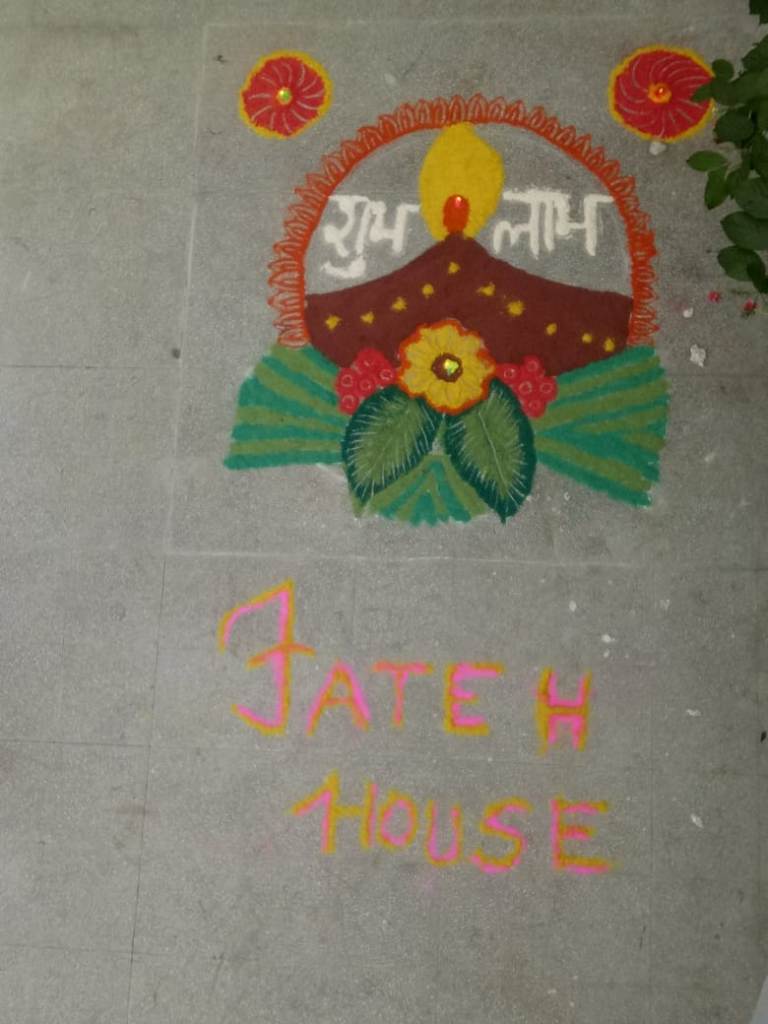 शुभ लाभ
FATEH
HOUSE